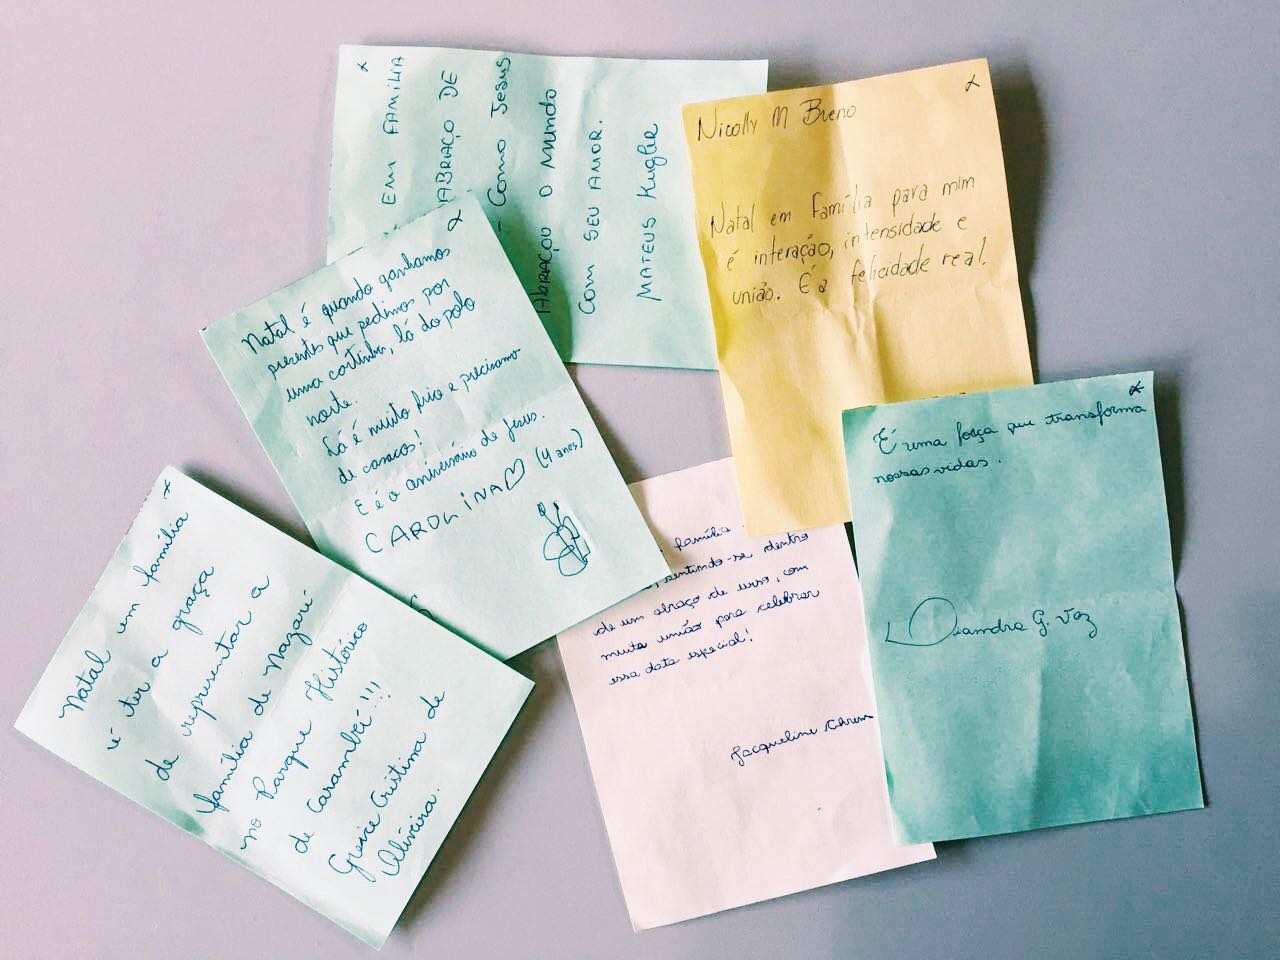 EM FAMÍLIA
ABRAÇO DE
- COMO JESUS
ABRAÇOU O MUNDO
COM SEU AMOR.
MATEUS Kugler
Nicolly M Breno
Natal em família para mim
é interação, intensidade e
união. É a felicidade real.
Natal é quando ganhamos
presentes que pedimos por
uma cartinha, lá do polo
norte.
Lá é muito frio e precisamos
de casacos!
E é o aniversário de Jesus.
CAROLINA (4 anos)
É uma força que transforma
nossas vidas.
G. Vaz
família
, sentindo-se dentro
de um abraço de urso, com
muita união para celebrar
essa data especial!
Jacqueline
Natal em família
é ter a graça
de representar a
família de Nazaré
no Parque Histórico
de Carambeí!!!
Greice Cristina de
Oliveira.